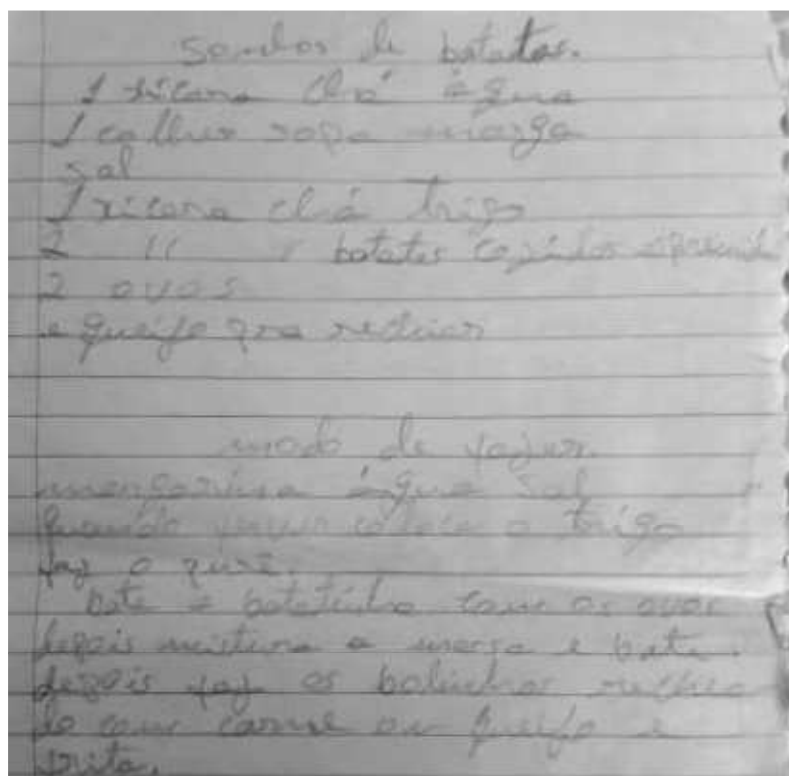 sonhos de batatas.
1 xicara chá água
1 colher sopa marga
sal
1 xicara chá trigo
2 " " batatas cozidas
2 ovos
e queijo pra rechiar
modo de fazer.
mangarina água sal
quando ferver coloca o trigo
faz o purê.
bate a batatinha com os ovos
depois mistura a marga e bate.
depois faz os bolinhos
do com carne ou queijo e
frita.